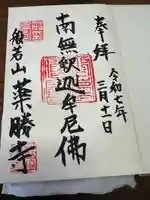 奉拝
令和七年
三月十一日
南無釈迦牟尼佛
般若山 薬勝寺